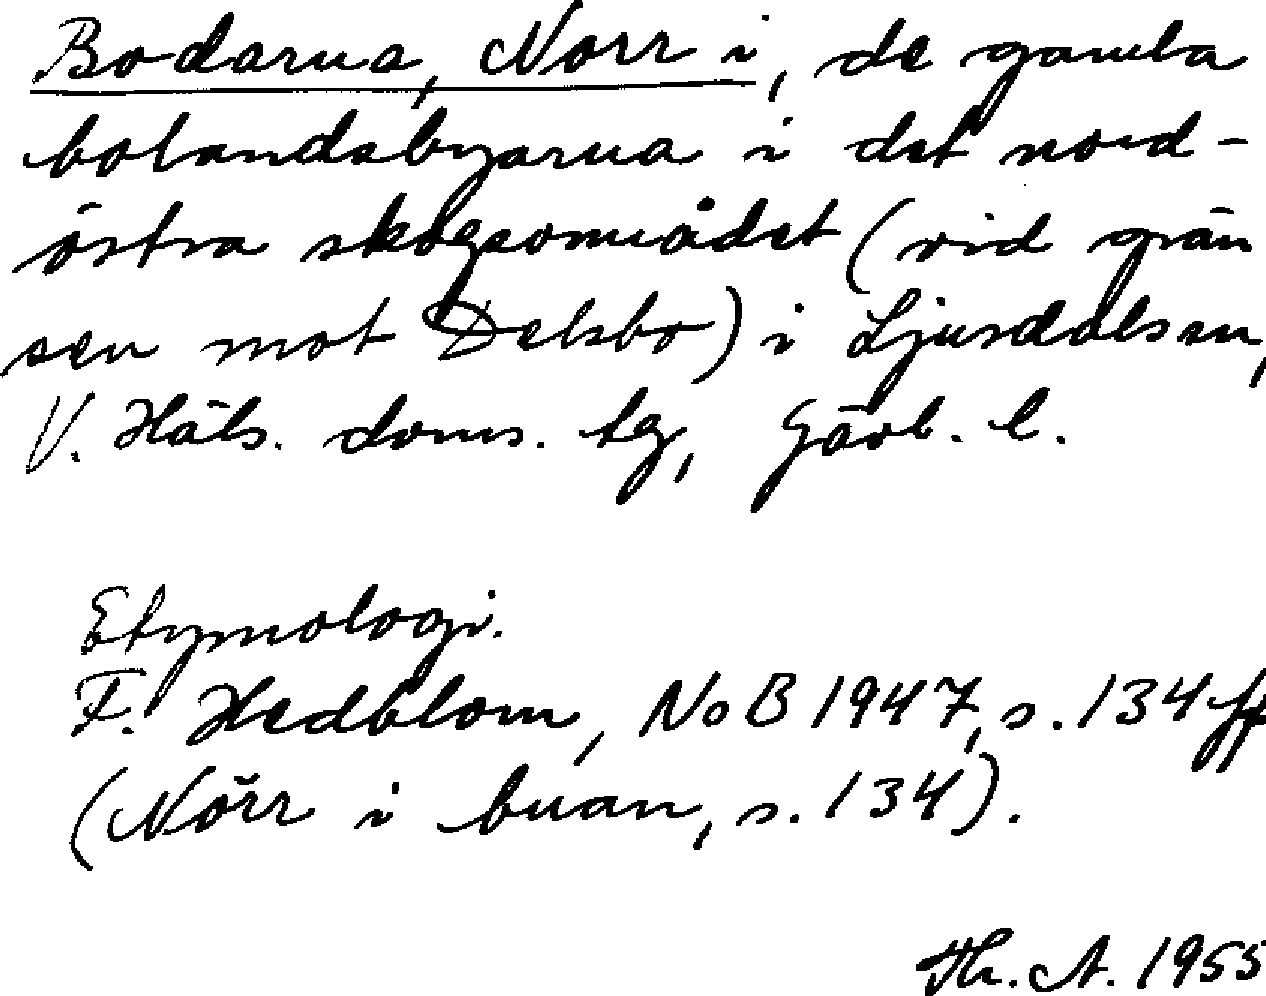 Bodarna, Norr i, de gamla
bolandsbyarna i det nord-
östra skogsområdet (vid grän
sen mot Delsbo) i Ljusdalsen,
V. Häls. doms. tg, Gävl. l.
Etymologi.
F. Hedblom, NoB 1947, s. 134 ff
(Nörr i buan, s. 134).
Th. A. 1955